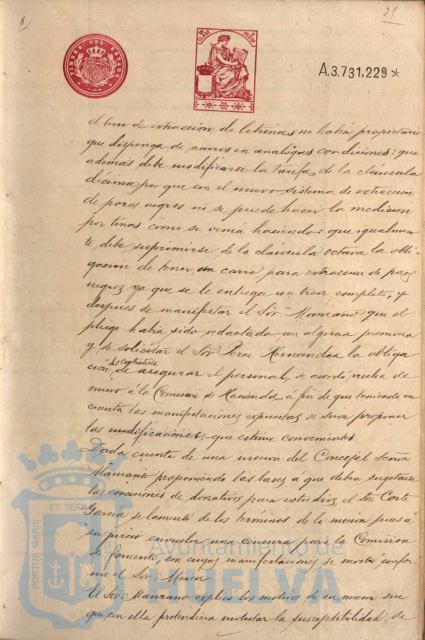 25
TIMBRE DEL ESTADO
A.3.731.229*
el tren de extracción de letrinas no habrá propietario
que disponga de carros en analogas condiciones: que
además debe modificarse la tarifa de la clausula
décima porque con el nuevo sistema de extracción
de pozos negros no se puede hacer la medicion
por tinas como se venía haciendo: que igualmen
te, debe suprimirse de la claúsula octava la obli
gación de tener un carro para extraccion de pozos
negros ya que se le entrega un tren completo, y
despues de manifestar el Sor. Manzano que el
pliego habia sido redactado con alguna premura
y de solicitar el Sor Perez Hernandez la obliga
del Contratista
cion de asegurar el personal, se acordó vuelva de
nuevo á la Comision de Hacienda á fin de que teniendo en
cuenta las manifestaciones expuestas se sirva proponer
las modificaciones que estime convenientes
Dada cuenta de una mocion del Concejal Señor
Manzano proponiendo las bases a que deben sugetarse
las concesiones de donativos para estudios el Sor Corte
García se lamentó de los terminos de la mocion pues á
su juicio envuelve una censura para la Comision
de Fomento, en cuyas manifestaciones se mostró confor
me el Sor.
El Sor Manzano explicó los motivos de su mocion sin
que con ella pretendiera molestar la susceptibilidad de
PORTUS MARIS ET TERRAE
Ayuntamiento de
HUELVA